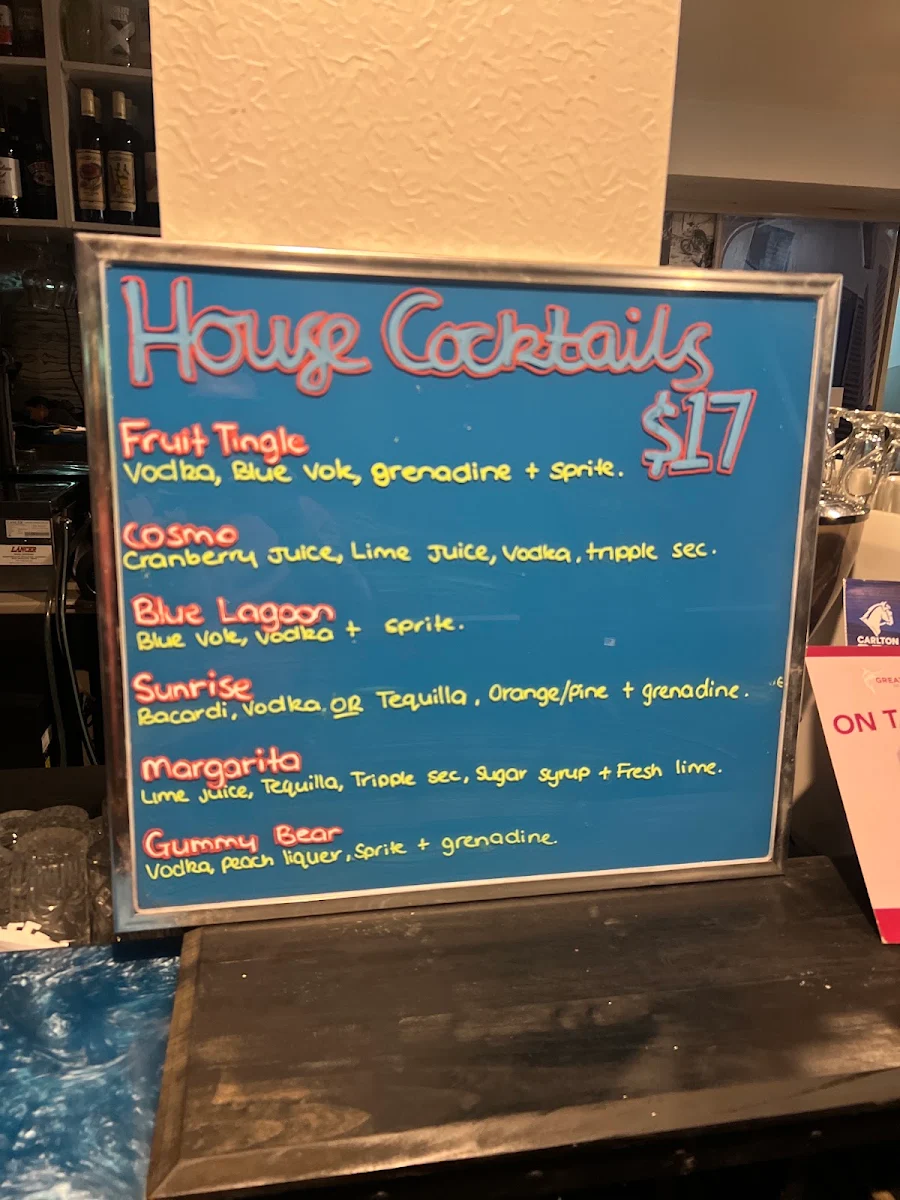 House Cocktails
$17
Fruit Tingle
Vodka, Blue Vok, grenadine + Sprite.
Cosmo
Cranberry Juice, Lime Juice, Vodka, tripple sec.
Blue Lagoon
Blue Vok, Vodka + sprite.
Sunrise
Bacardi, Vodka OR Tequilla, Orange/Pine + grenadine.
Margarita
Lime Juice, Tequilla, Tripple sec, Sugar syrup + Fresh lime.
Gummy Bear
Vodka, peach liquer, Sprite + grenadine.
LANCER
CARLTON
GREA
ON T